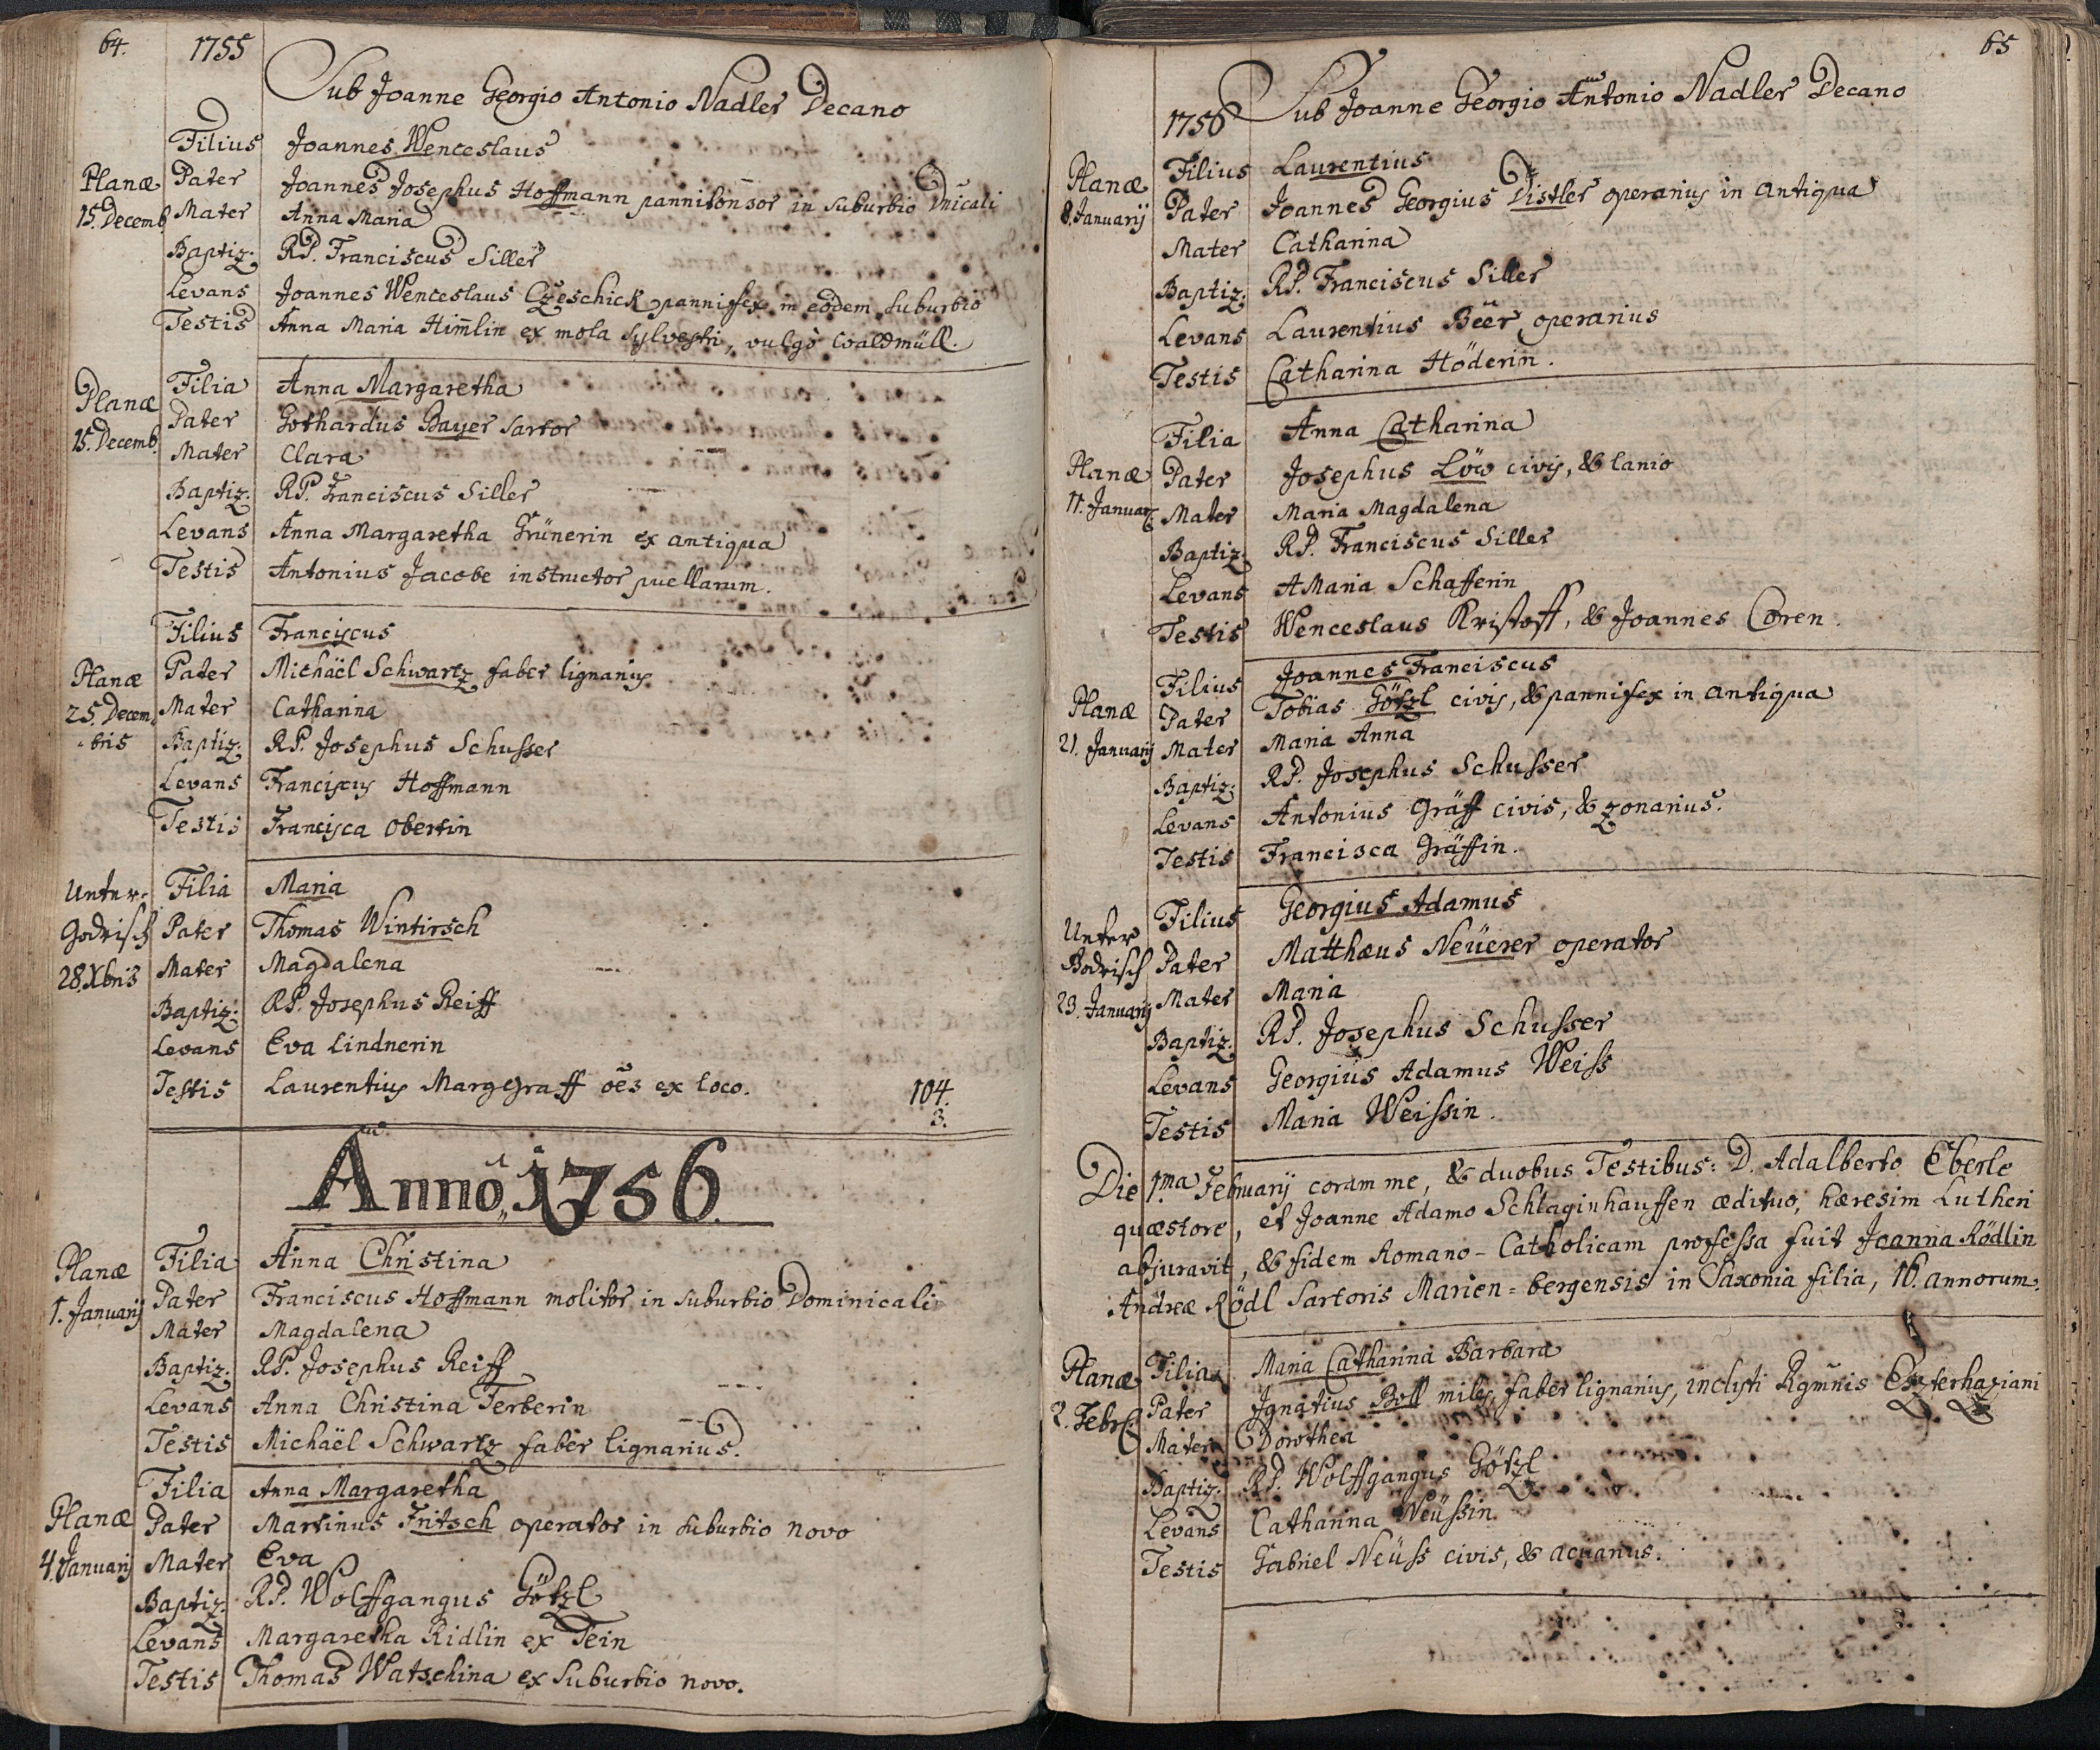 64.
1755
Sub Joanne Georgio Antonio Nadler Decano
Filius Joannes Wenceslaus
Planæ Pater Joannes Josephus Hoffmann pannitonsor in suburbio Dnĩcali
15. Decemb. Mater Anna Maria
Baptiz. RP. Franciscus Siller
Levans Joannes Wenceslaus Czeschick pannifex in eodem suburbio
Testis Anna Maria Him̄lin ex mola sylvestri, vulgò Waldmüll.
Filia Anna Margaretha
Planæ Pater Gothardus Bayer Sartor
15. Decemb. Mater Clara
Baptiz. RP. Franciscus Siller
Levans Anna Margaretha Grünerin ex antiqua
Testis Antonius Jacobe instructor puellarum.
Filius Franciscus
Planæ Pater Michaël Schwartz faber lignarius
25. Decem- Mater Catharina
bris Baptiz. RP. Josephus Schusser
Levans Franciscus Hoffmann
Testis Francisca Obertin
Unter- Filia Maria
Godrisch Pater Thomas Wintirsch
28. Xbris Mater Magdalena
Baptiz. RP. Josephus Reiff
Levans Eva Lindnerin
Testis Laurentius Marggraff oẽs ex loco. 104.
3.
Anno 1756.
Planæ Filia Anna Christina
1. Januarij Pater Franciscus Hoffmann molitor in suburbio Dominicali
Mater Magdalena
Baptiz. RP. Josephus Reiff
Levans Anna Christina Ferberin
Testis Michaël Schwartz faber lignarius.
Filia Anna Margaretha
Planæ Pater Martinus Fritsch operator in suburbio novo
4. Januarij Mater Eva
Baptiz. RP. Wolffgangus Götzl
Levans Margaretha Ridlin ex Tein
Testis Thomas Watschina ex suburbio novo.
65
1756 Sub Joanne Georgio Antonio Nadler Decano
Planæ Filius Laurentius
8. Januarij Pater Joannes Georgius Distler operarius in antiqua
Mater Catharina
Baptiz. RP. Franciscus Siller
Levans Laurentius Beer operarius
Testis Catharina Höderin.
Filia Anna Catharina
Planæ Pater Josephus Löw civis, & lanio
11. Januar. Mater Maria Magdalena
Baptiz. RP. Franciscus Siller
Levans AMaria Schafferin
Testis Wenceslaus Kristoff, & Joannes Coren.
Filius Joannes Franciscus
Planæ Pater Tobias Götzl civis, & pannifex in antiqua
21. Januarij Mater Maria Anna
Baptiz. RP. Josephus Schusser
Levans Antonius Gräff civis, & zonarius.
Testis Francisca Gräffin.
Unter Filius Georgius Adamus
Godrisch Pater Matthæus Neüerer operator
23. Januarij Mater Maria
Baptiz. RP. Josephus Schusser
Levans Georgius Adamus Weiss
Testis Maria Weissin.
Die 1ma Februarij coram me, & duobus Testibus: D. Adalberto Eberle
quæstore, et Joanne Adamo Schlaginhauffen ædituo, hæresim Lutheri
abjuravit, & fidem Romano-Catholicam professa fuit Joanna Rödlin
Andreæ Rödl Sartoris Marien=bergensis in Saxonia filia, 16. annorum.
Planæ Filia Maria Catharina Barbara
2. Febr. Pater Ignatius Boll miles, faber lignarius, inclyti Rgm̃nis Eszterhaziani
Mater Dorothea
Baptiz. RP. Wolffgangus Götzl
Levans Catharina Neüssin
Testis Gabriel Neüss civis, & acuarius.